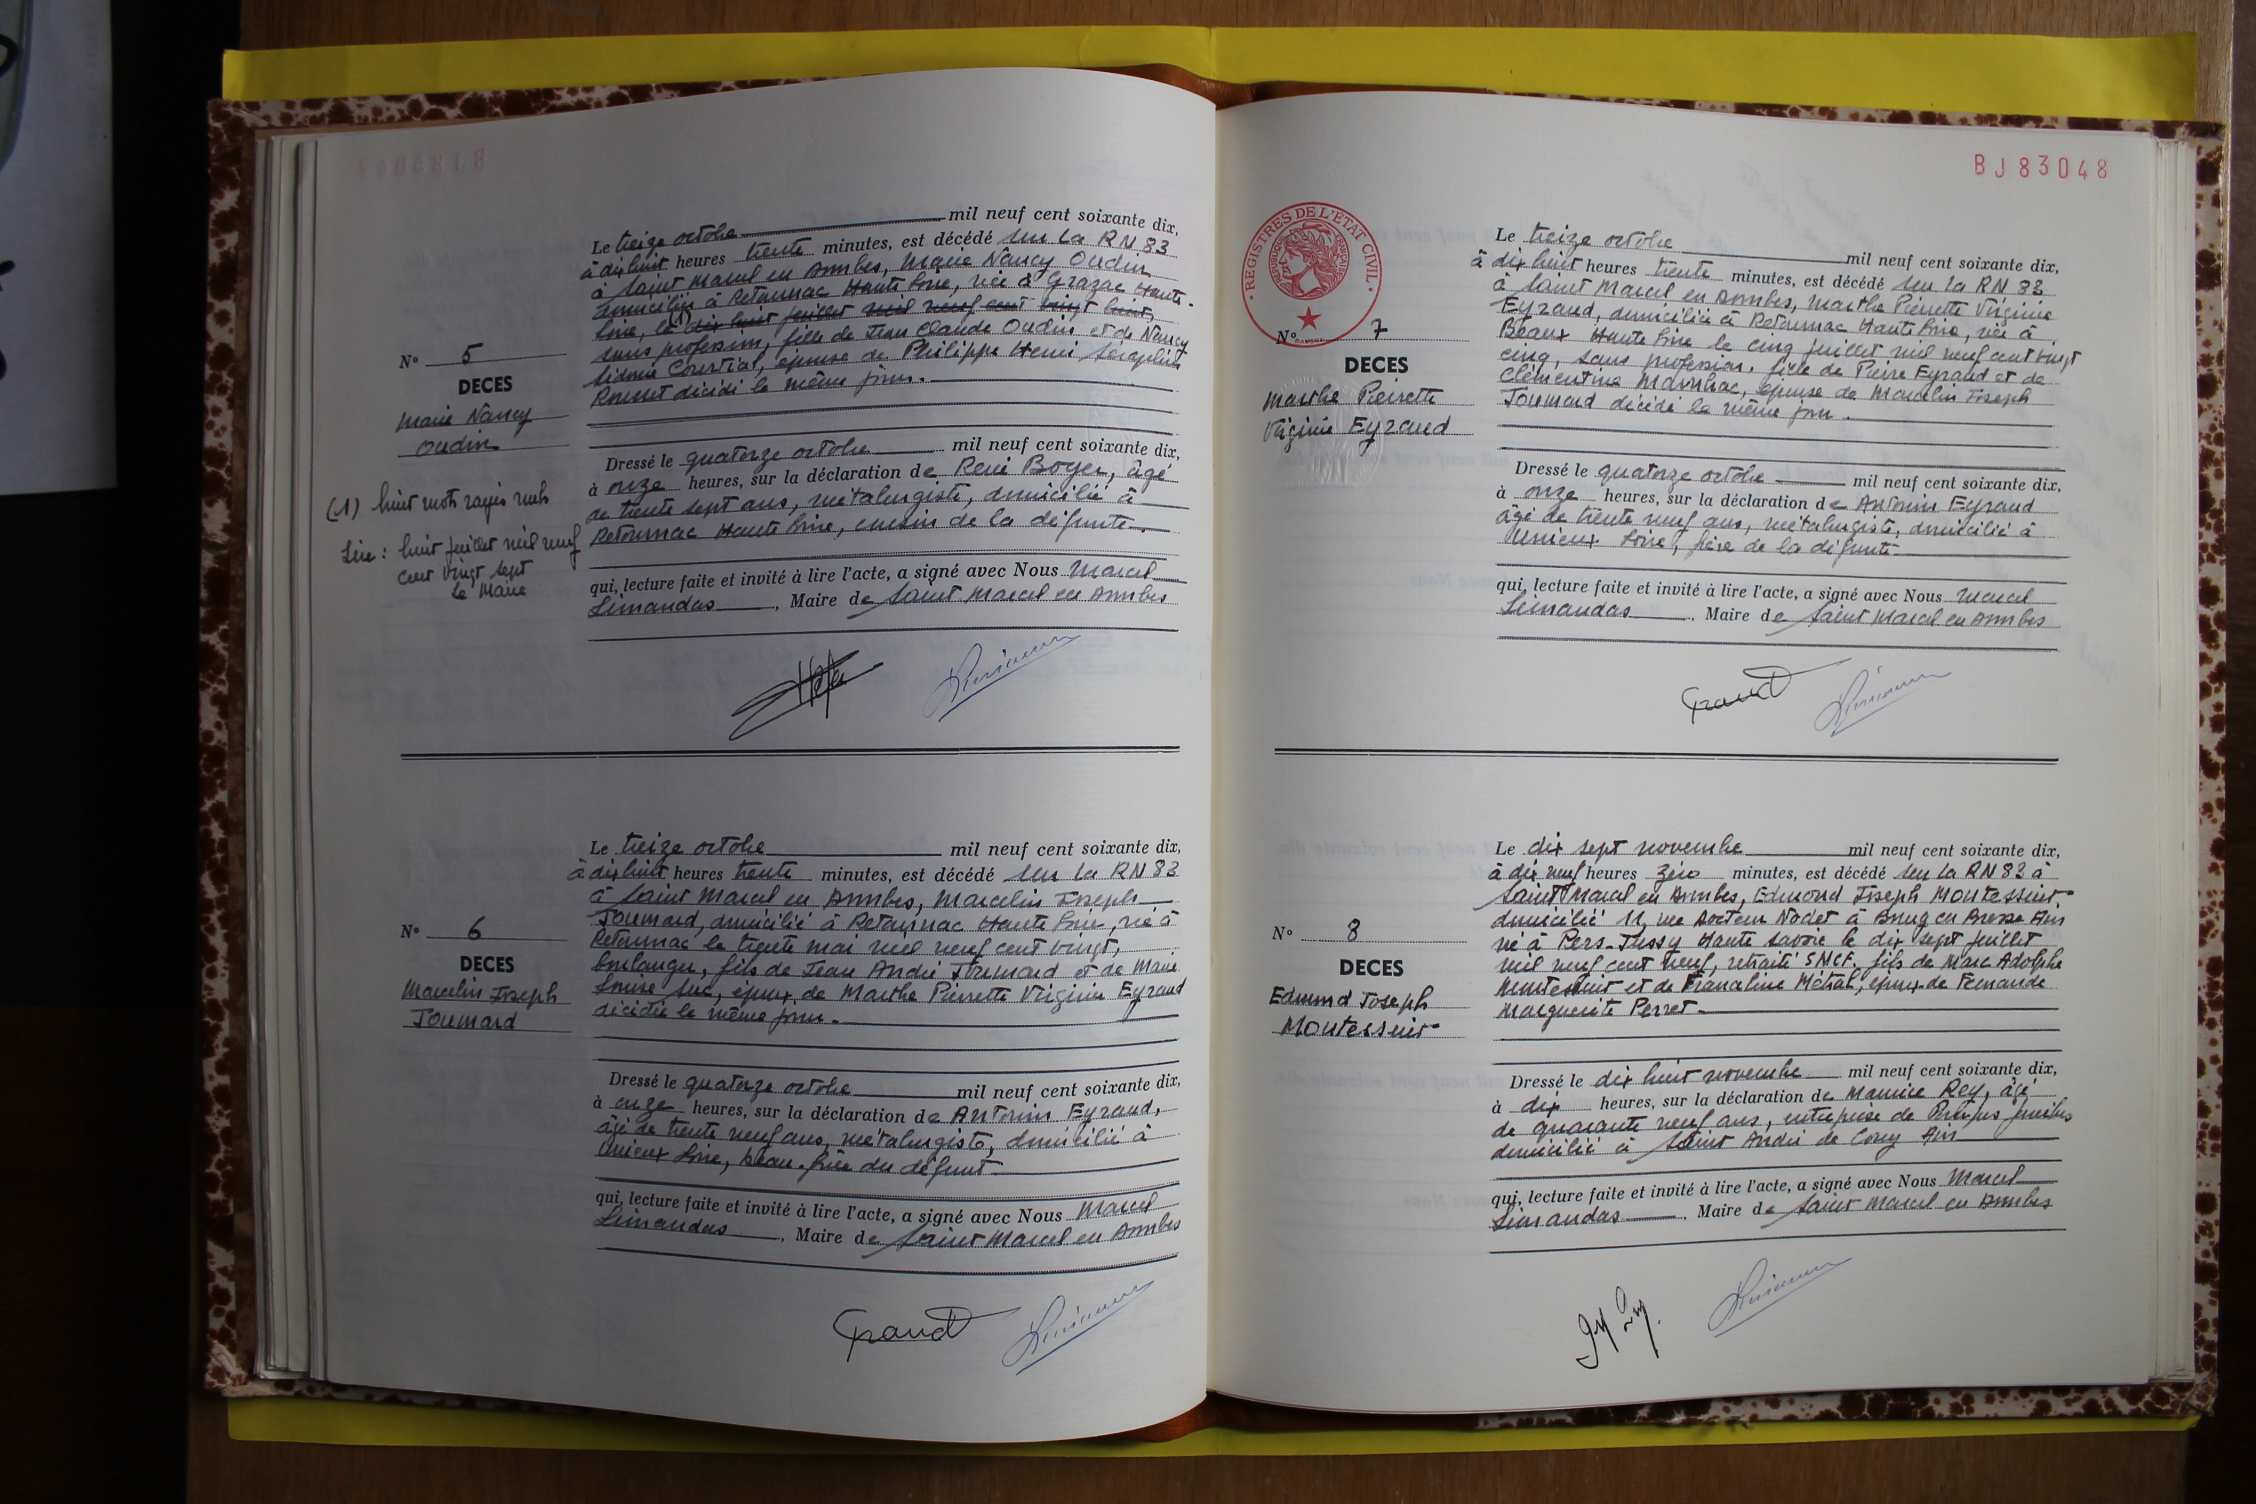 Le treize octobre mil neuf cent soixante dix,
à dix huit heures trente minutes, est décédé sur la RN 83
à Saint Marcel en Dombes, Marie Nancy Oudin
domiciliée à Retournac Haute Loire, née à Grazac Haute-
Loire, le (1) dix huit juillet mil neuf cent vingt huit,
sans profession, fille de Jean Claude Oudin et de Nancy
Sidonie Courtial, épouse de Philippe Henri Séraphin
Rousset décédé le même jour.
N° 5
DECES
Marie Nancy
Oudin
(1) huit mots rayés nuls
Lire : huit juillet mil neuf
cent vingt sept
Le Maire
Dressé le quatorze octobre mil neuf cent soixante dix,
à onze heures, sur la déclaration de René Boyer, âgé
de trente sept ans, métalurgiste, domicilié à
Retournac Haute Loire, cousin de la défunte.
qui, lecture faite et invité à lire l'acte, a signé avec Nous Marcel
Limandas, Maire de Saint Marcel en Dombes
Le treize octobre mil neuf cent soixante dix,
à dix huit heures trente minutes, est décédé sur la RN 83
à Saint Marcel en Dombes, Marcelin Joseph
Joumard, domicilié à Retournac Haute Loire, né à
Retournac le trente mai mil neuf cent vingt,
boulanger, fils de Jean André Joumard et de Marie
Louise Luc, époux de Marthe Pierrette Virginie Eyraud
décédée le même jour.
N° 6
DECES
Marcelin Joseph
Joumard
Dressé le quatorze octobre mil neuf cent soixante dix,
à onze heures, sur la déclaration de Antonin Eyraud,
âgé de trente neuf ans, métalurgiste, domicilié à
Unieux Loire, beau-frère du défunt
qui, lecture faite et invité à lire l'acte, a signé avec Nous Marcel
Limandas, Maire de Saint Marcel en Dombes
BJ83048
REGISTRES DE L'ETAT CIVIL
Le treize octobre mil neuf cent soixante dix,
à dix huit heures trente minutes, est décédé sur la RN 83
à Saint Marcel en Dombes, Marthe Pierrette Virginie
Eyraud, domiciliée à Retournac Haute Loire, née à
Beaux Haute Loire le cinq juillet mil neuf cent vingt
cinq, sans profession, fille de Pierre Eyraud et de
Clémentine Marnhac, épouse de Marcelin Joseph
Joumard décédé le même jour.
N° 7
DECES
Marthe Pierrette
Virginie Eyraud
Dressé le quatorze octobre mil neuf cent soixante dix,
à onze heures, sur la déclaration de Antonin Eyraud
âgé de trente neuf ans, métalurgiste, domicilié à
Unieux Loire, frère de la défunte
qui, lecture faite et invité à lire l'acte, a signé avec Nous Marcel
Limandas, Maire de Saint Marcel en Dombes
Le dix sept novembre mil neuf cent soixante dix,
à dix neuf heures zéro minutes, est décédé sur la RN 83 à
Saint Marcel en Dombes, Edmond Joseph Montessuit
domicilié 11, rue Docteur Nodet à Bourg en Bresse Ain
né à Pers-Jussy Haute Savoie le dix sept juillet
mil neuf cent neuf, retraité SNCF, fils de Marc Adolphe
Montessuit et de Franceline Métral, époux de Fernande
Marguerite Perret.
N° 8
DECES
Edmond Joseph
Montessuit
Dressé le dix huit novembre mil neuf cent soixante dix,
à dix heures, sur la déclaration de Maurice Rey, âgé
de quarante neuf ans, entreprise de Pompes funèbres
domicilié à Saint André de Corcy Ain
qui, lecture faite et invité à lire l'acte, a signé avec Nous Marcel
Limandas, Maire de Saint Marcel en Dombes